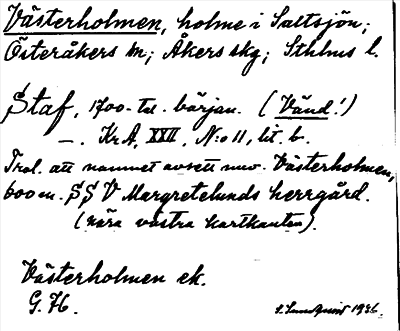 Västerholmen, holme i Saltsjön;
Österåkers sn; Åkers skg; Sthlms l.
Staf, 1700-tal. början. (Vänd!)
—. Kr. A, XXII, N:o 11, lit. b.
Trol. att namnet avsett nuv. Västerholmen,
600 m. SSV Margretelunds herrgård.
(nära västra kartkanten).
Västerholmen ek.
G. 76.
I. Lundquist 1936.